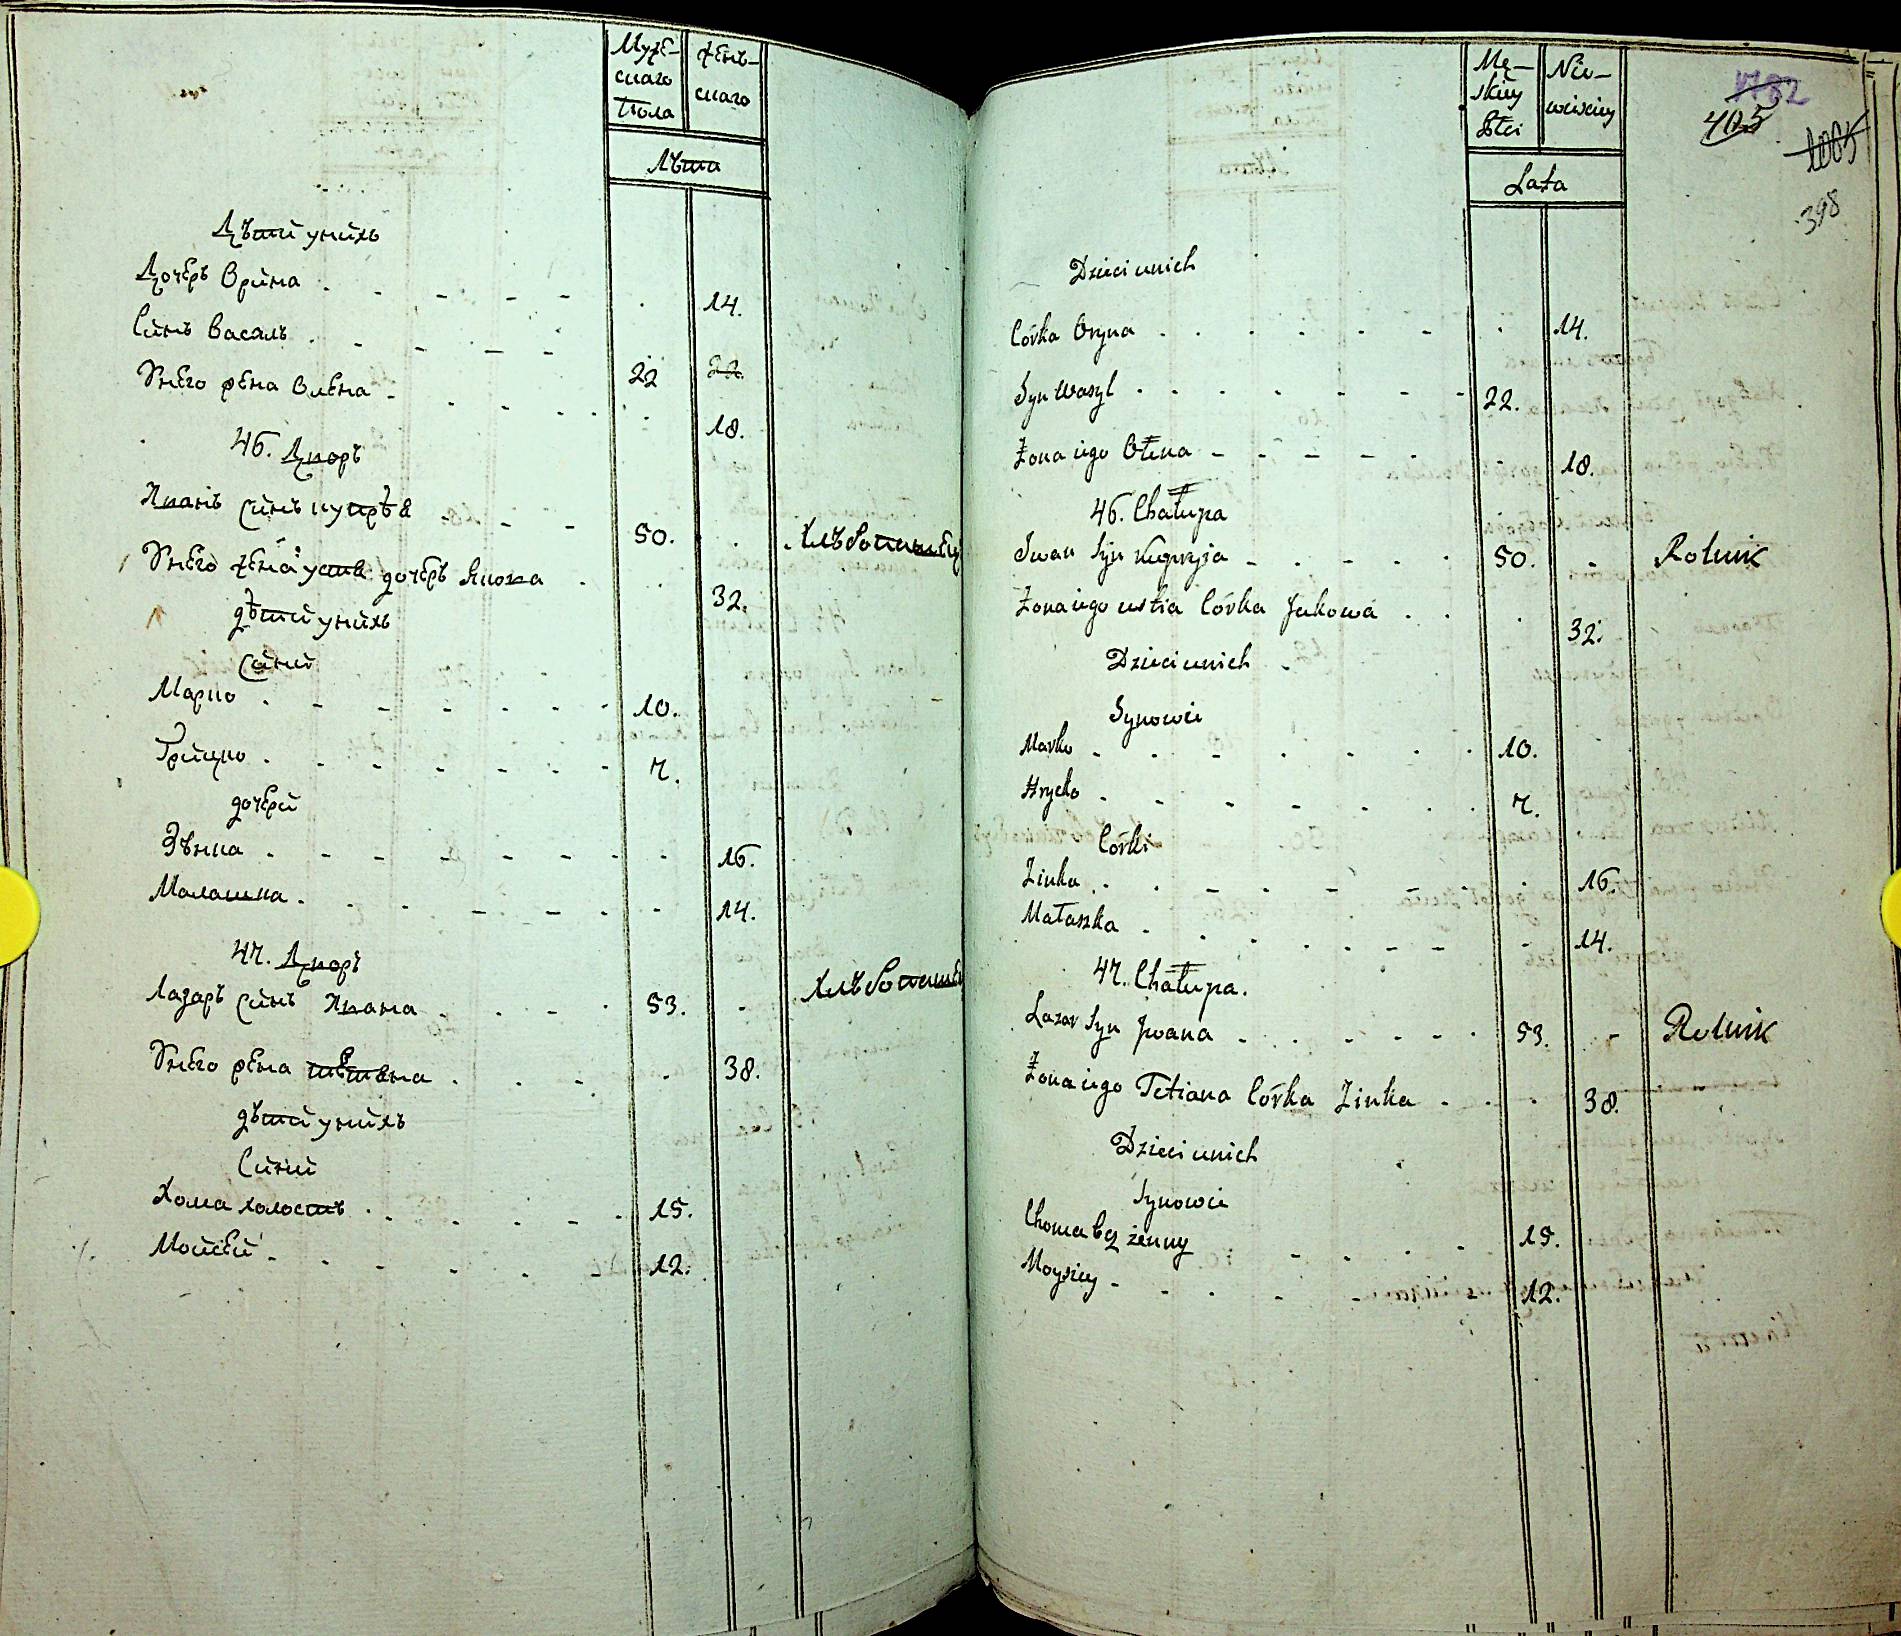 Муже-
скаго
Пола
жень-
скаго
Лѣта
Дѣтй унихъ
Дочеръ Ѡрина 14.
Синъ Василь 22 22.
Унего жена Ѡлена 18.
46. Дворъ
Иванъ Синъ купрѣя 50. Хлѣбопашец
Унего жена устя дочеръ Якова 32.
дѣтй унихъ
Синй
Марко 10.
Грицко 7.
дочерй
Зѣнка 16.
Малашка 14.
47. Дворъ
Лазаръ Синъ Ивана 53. Хлѣбопашец
Унего жена тетяна 38.
дѣтй унйхъ
Синй
Хома холостъ 15.
Мойсей 12.
Mę-
skiey
Płci
Nie-
wiesciey
Lata
4182
405
1005
398
Dzieci unich
Córka Oryna 14.
Syn Wasyl 22.
Żona iego Ołena 18.
46. Chałupa
Iwan Syn Kupryja 50. Rolnik
Żona iego ustia Córka Jakowa 32.
Dzieci unich
Synowie
Marko 10.
Hrycko 7.
Córki
Zinka 16.
Małaszka 14.
47. Chałupa.
Lazar Syn Jwana 53. Rolnik
Żona iego Tetiana Córka Zinka 38.
Dzieci unich
Synowie
Choma bez żenny 15.
Moysiey 12.